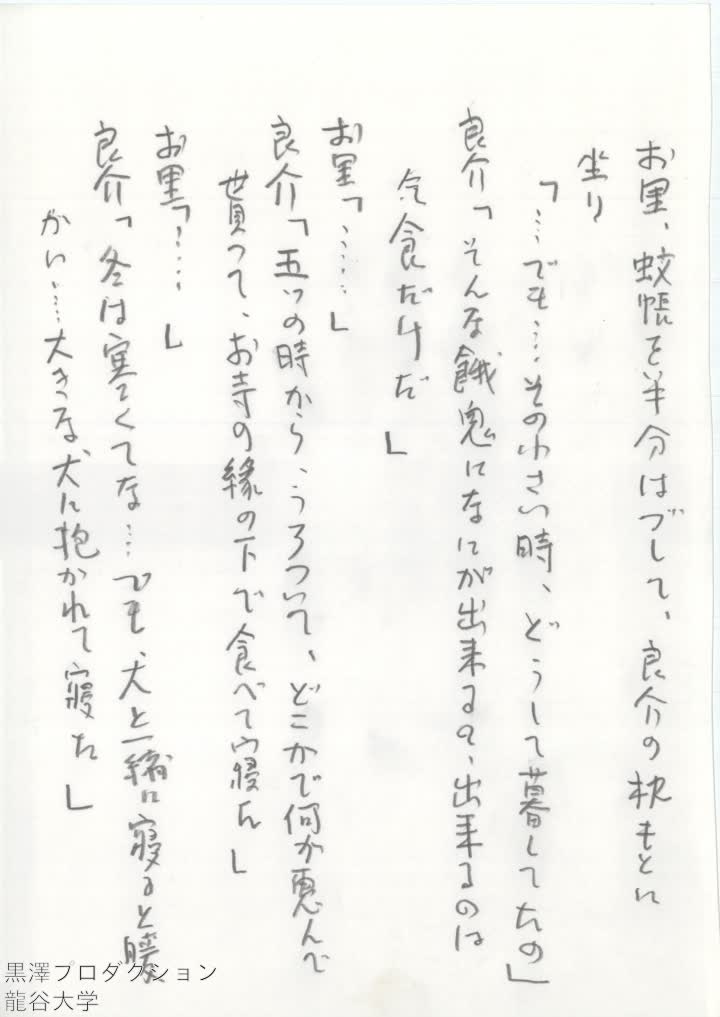 お里、蚊帳を半分はづして、良介の枕もとに
坐り
「…でも…その小さい時、どうして暮してたの」
良介「そんな餓鬼になにが出来るの、出来るのは
乞食だけだ」
お里「……」
良介「五つの時から、うろついて、どこかで何か恵んで
貰って、お寺の縁の下で食べて寝た」
お里「……」
良介「冬は寒くてな…でも、犬と一緒に寝ると暖
かい…大きな犬に抱かれて寝た」
黒澤プロダクション
龍谷大学